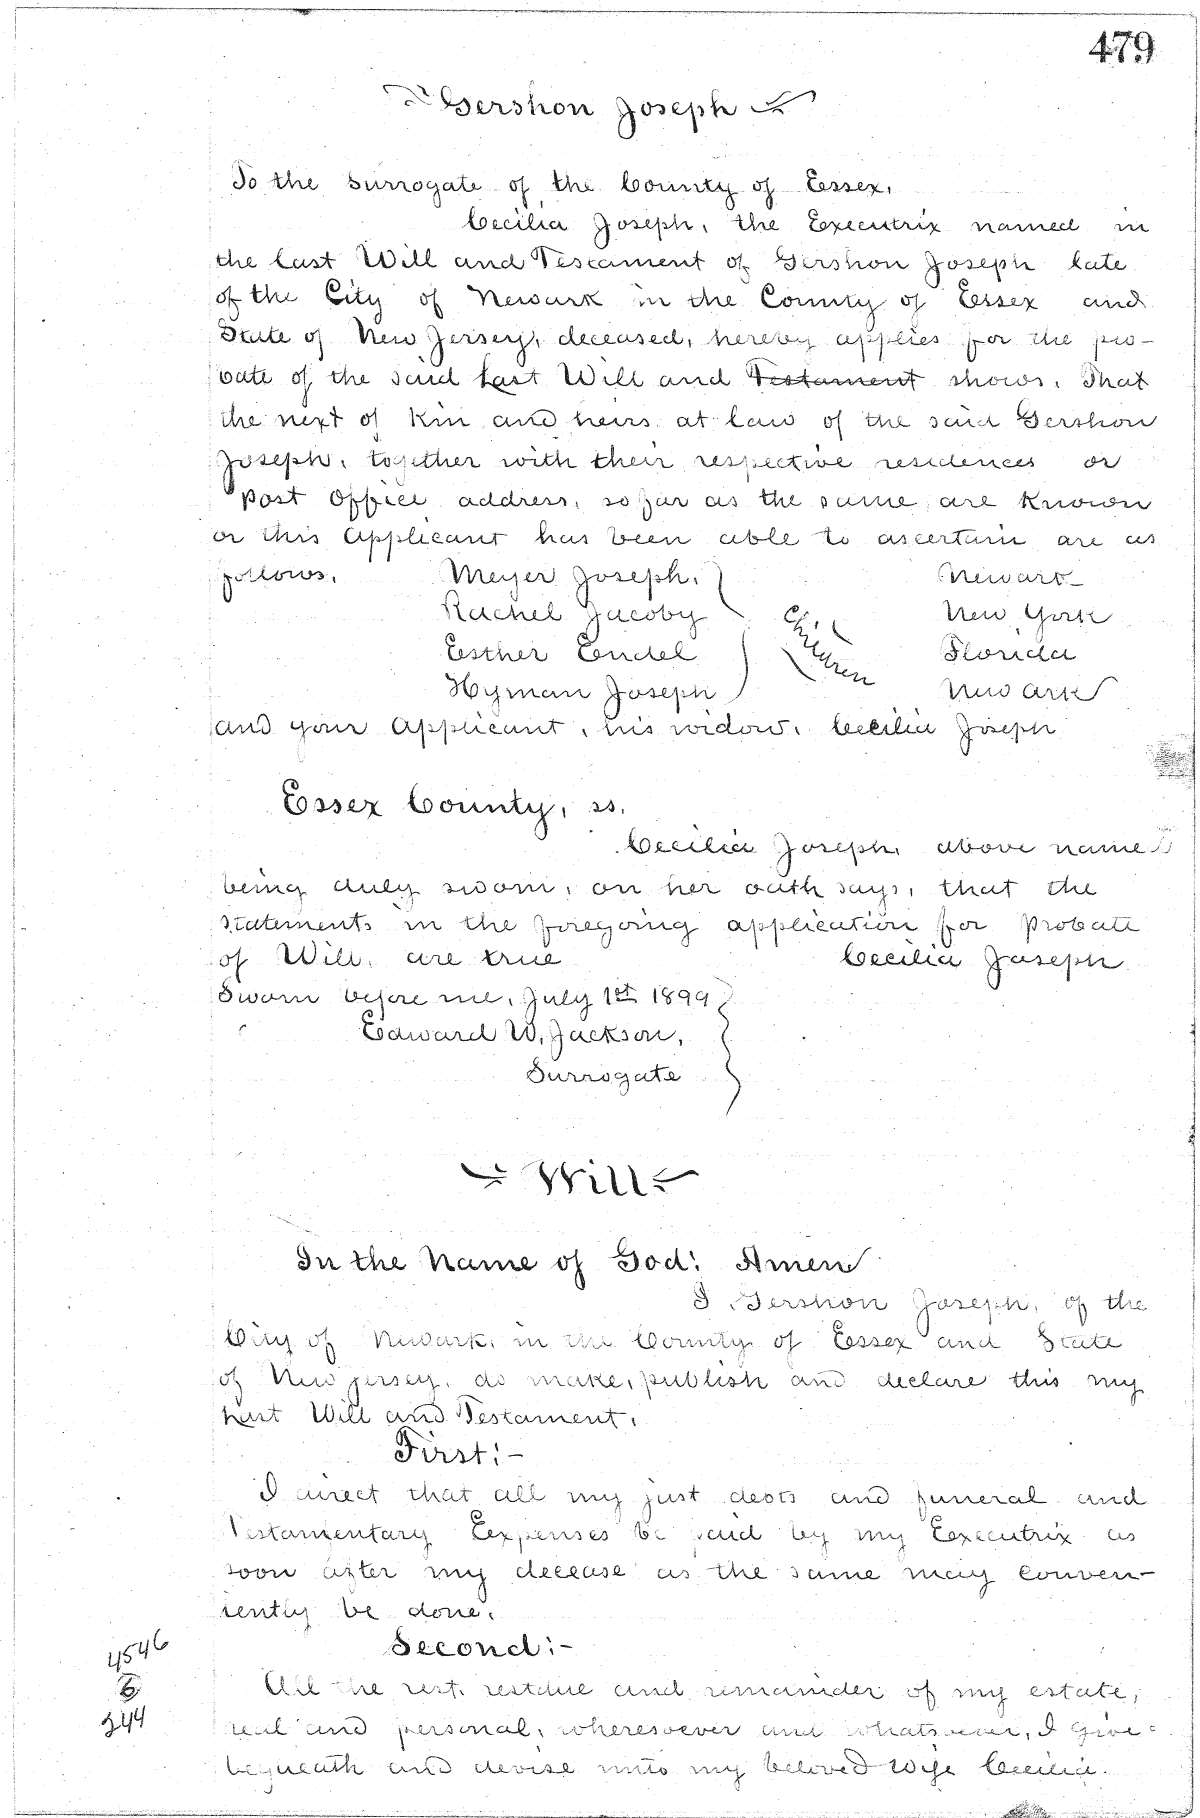 479
Gershon Joseph
To the Surrogate of the County of Essex,
Cecilia Joseph, the Executrix named in
the last Will and Testament of Gershon Joseph late
of the City of Newark in the County of Essex and
State of New Jersey, deceased, hereby applies for the pro-
bate of the said Last Will and Testament shows. That
the next of Kin and heirs at law of the said Gershon
Joseph, together with their respective residences or
Post Office address, so far as the same are Known
or this Applicant has been able to ascertain are as
follows, Meyer Joseph, Newark
Rachel Jacoby New York
Esther Endel Children Florida
Hyman Joseph Newark
and your Applicant, his widow, Cecilia Joseph
Essex County, ss.
Cecilia Joseph, above named
being duly sworn, on her oath says, that the
statements in the foregoing application for Probate
of Will, are true Cecilia Joseph
Sworn before me, July 1st 1899
Edward W. Jackson,
Surrogate
Will
In the Name of God: Amen
I Gershon Joseph, of the
City of Newark, in the County of Essex and State
of New Jersey, do make, publish and declare this my
last Will and Testament,
First:-
I direct that all my just debts and funeral and
Testamentary Expenses be paid by my Executrix as
soon after my decease as the same may conven-
iently be done.
Second:-
4546
6
244
All the rest, residue and remainder of my estate,
real and personal, wheresoever and whatsoever, I give
bequeath and devise unto my beloved Wife Cecilia.